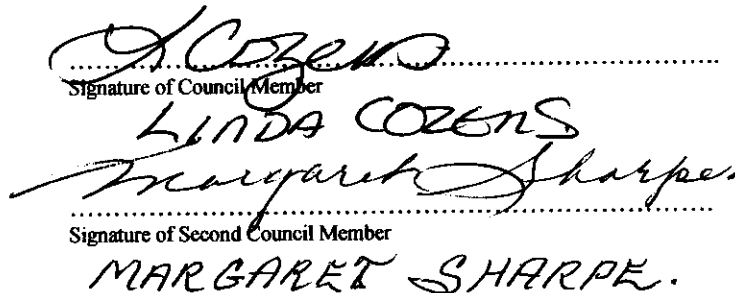 L Cozens
Signature of Council Member
LINDA COZENS
Margaret Sharpe.
Signature of Second Council Member
MARGARET SHARPE.